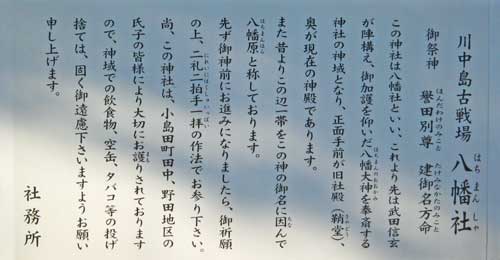 川中島古戦場 八幡社
はちまんしゃ
御祭神 誉田別尊 建御名方命
ほんだわけのみこと たけみなかたのみこと
この神社は八幡社といい、これより先は武田信玄
が陣構え、御加護を仰いだ八幡大神を奉斎する
神社の神域となり、正面手前が旧社殿(鞘堂)、
奥が現在の神殿であります。
また昔よりこの辺一帯をこの神の御名に因んで
八幡原と称しております。
はちまんはら
先ず御神前にお進みになりましたら、御祈願
の上、二礼二拍手一拝の作法でお参り下さい。
尚、この神社は、小島田町田中、野田地区の
氏子の皆様により大切にお護りされております
ので、神域での飲食物、空缶、タバコ等の投げ
捨ては、固く御遠慮下さいますようお願い
申し上げます。
社務所